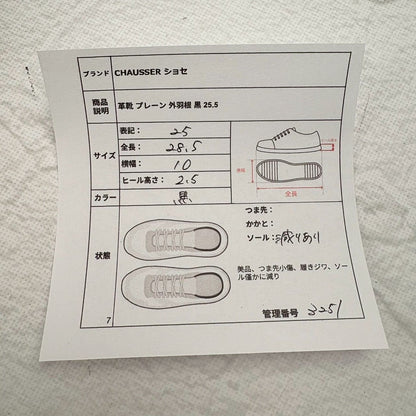 ブランド CHAUSSER ショセ
商品説明 革靴 プレーン 外羽根 黒 25.5
サイズ
表記： 25
全長： 28.5
横幅： 10
ヒール高さ： 2.5
横幅
全長
カラー 黒
状態
つま先：
かかと：
ソール： 減りあり
美品、つま先小傷、履きジワ、ソール僅かに減り
7
管理番号 3251